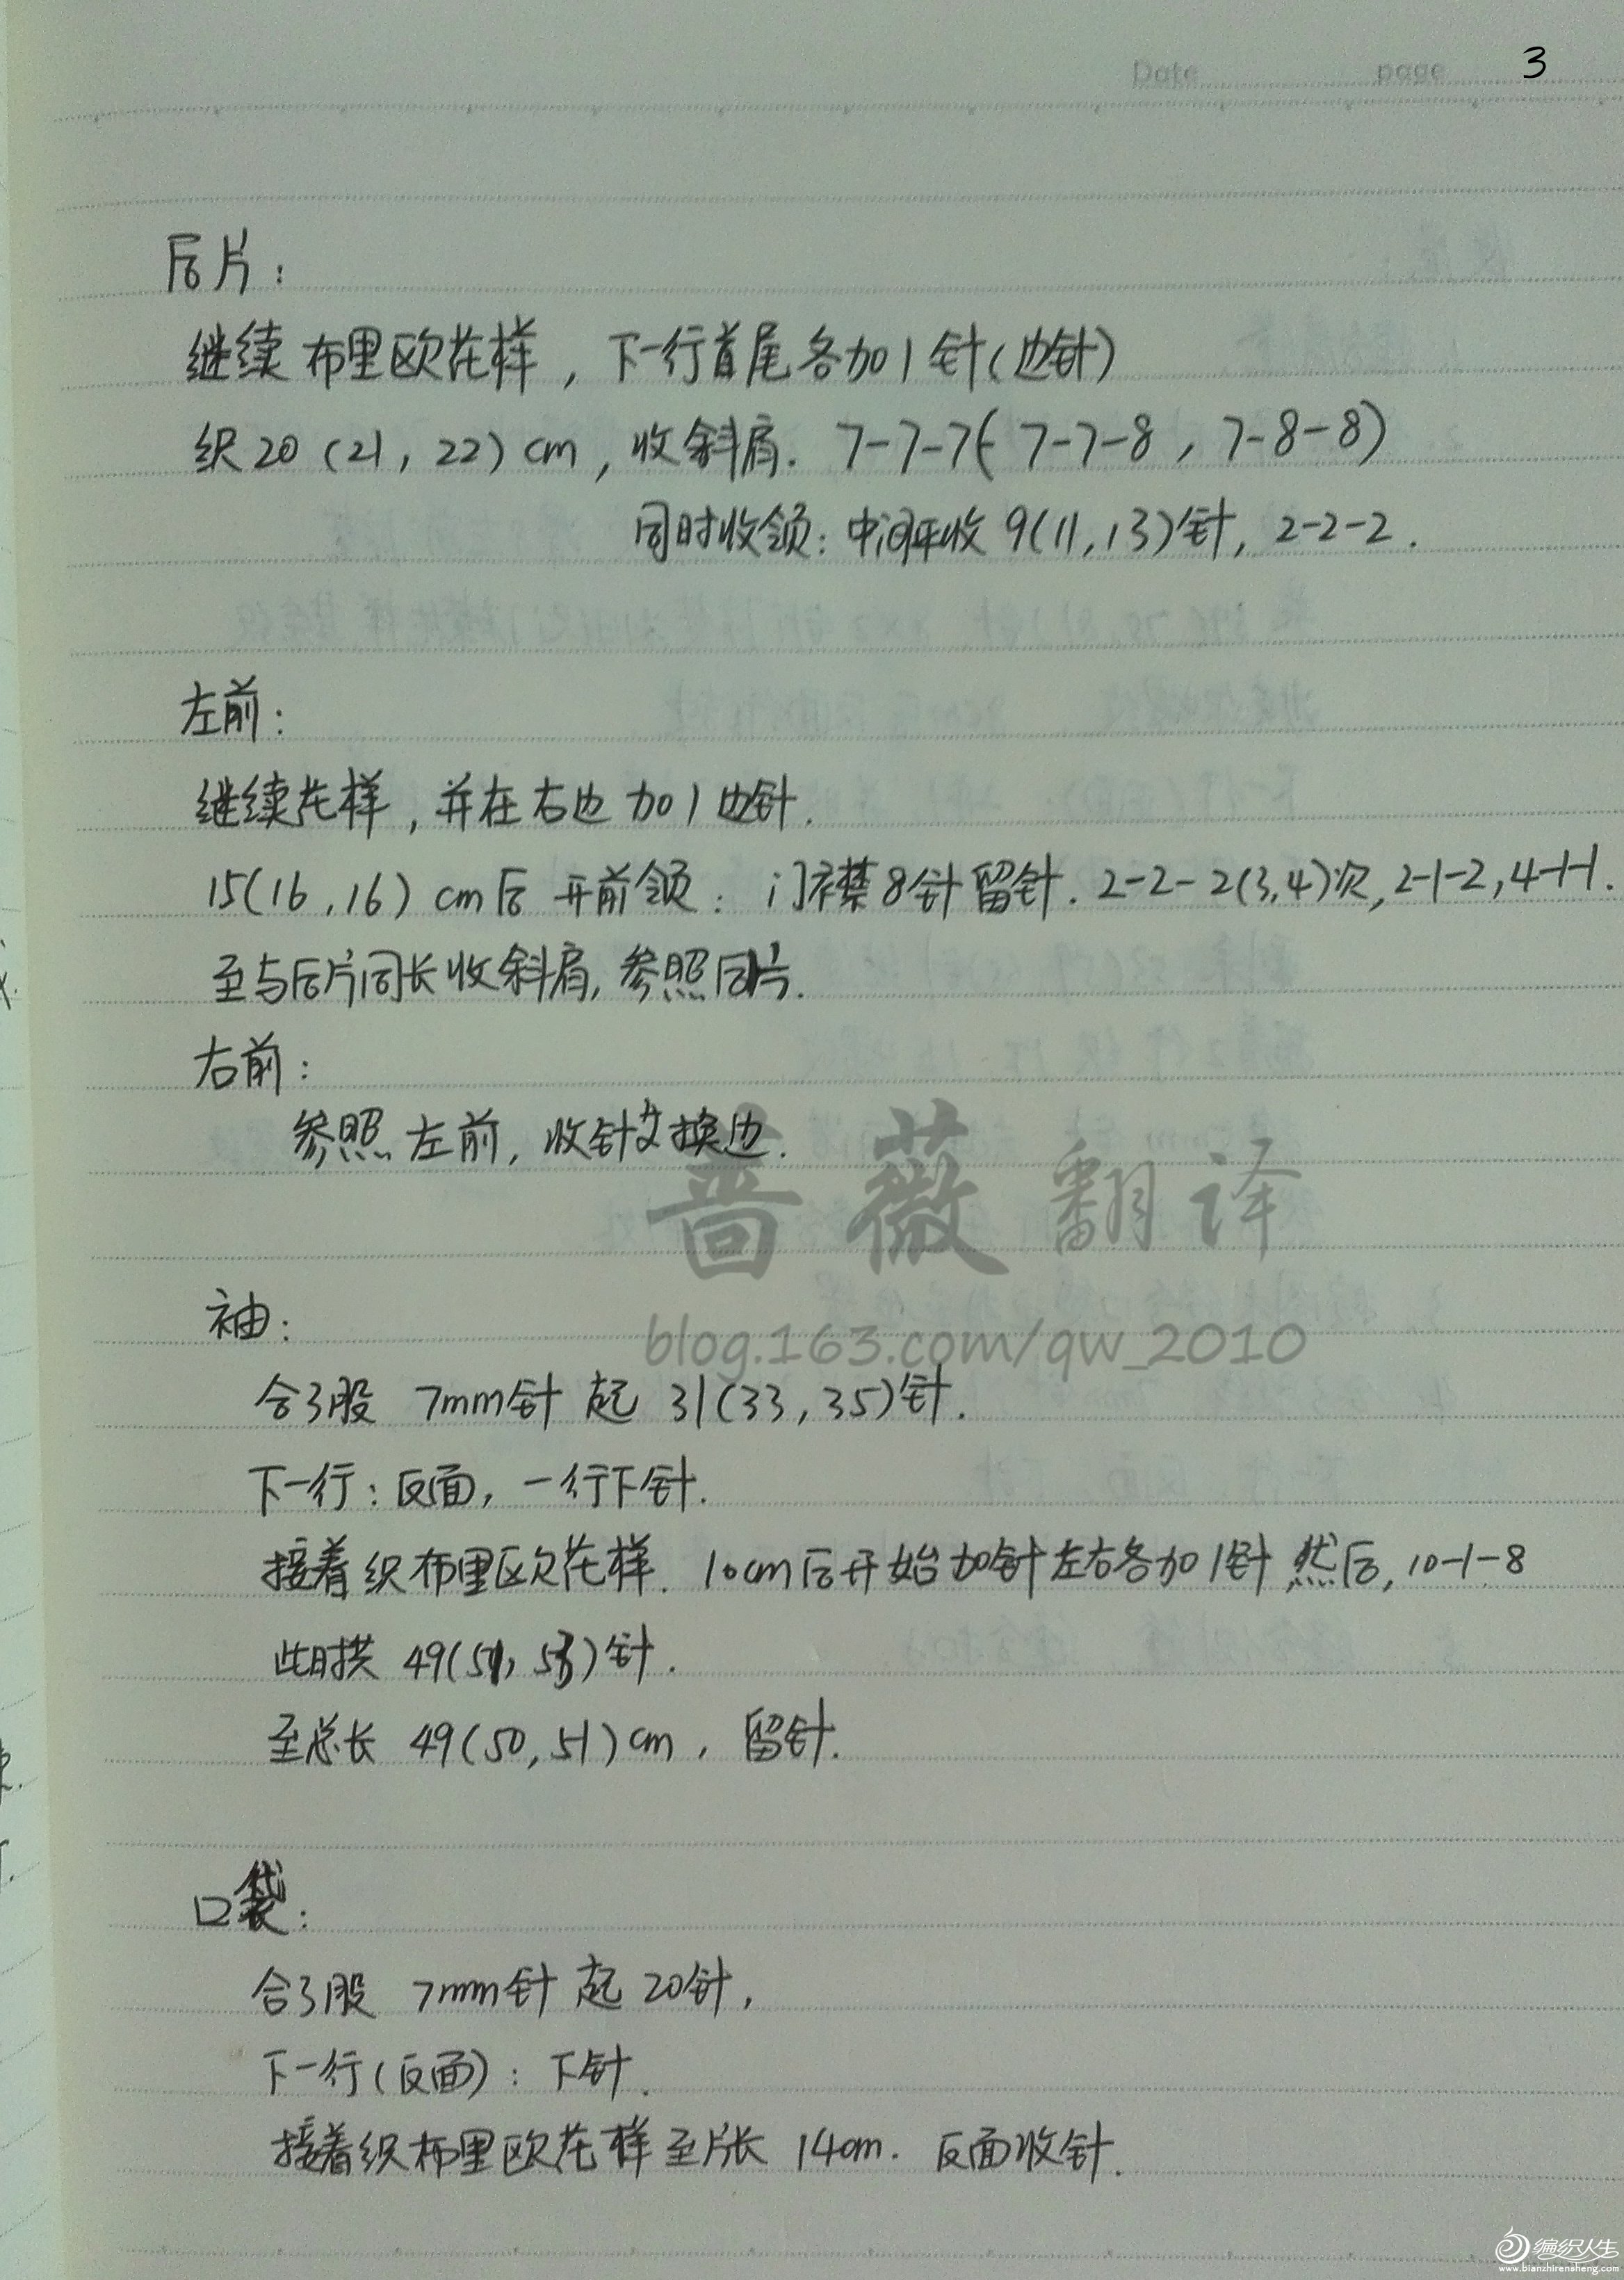 Date page 3
后片：
继续布里欧花样，下一行首尾各加1针(边针)
织20(21，22)cm，收斜肩．7-7-7(7-7-8，7-8-8)
同时收领：中间平收9(11,13)针，2-2-2．
左前：
继续花样，并在右边加1边针．
15(16,16)cm后开前领：门襟8针留针．2-2-2(3,4)次,2-1-2,4-1-1．
至与后片同长收斜肩,参照后片．
右前：
参照左前，收针处换边．
蔷薇翻译
袖：
blog.163.com/qw_2010
合3股 7mm针 起 31(33,35)针．
下一行：反面，一行下针．
接着织布里欧花样．10cm后开始加针左右各加1针,然后,10-1-8
此时共 49(51,53)针．
至总长 49(50,51)cm，留针．
口袋：
合3股 7mm针 起 20针，
下一行(反面)：下针．
接着织布里欧花样至片长 14cm．反面收针．
编织人生
www.bianzhirensheng.com